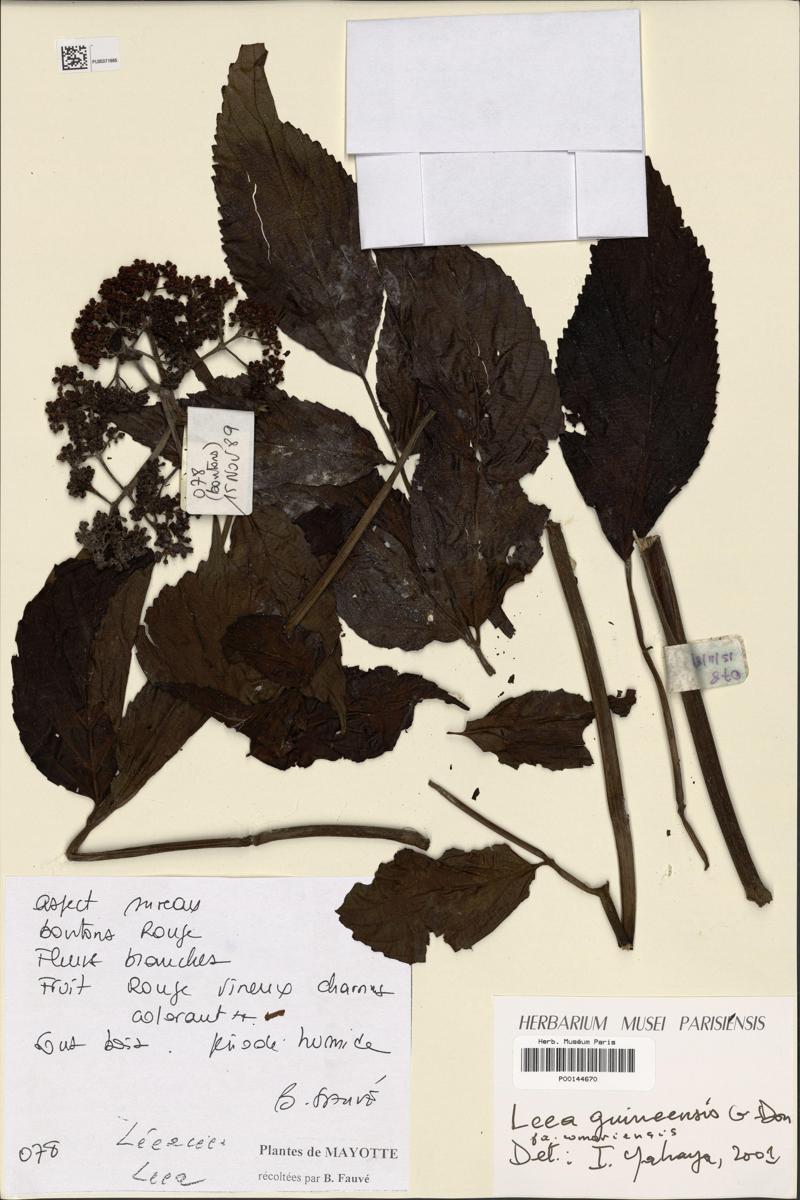 PL00371985
078
(boutons)
15 NOV 89
15/11/8
078
aspect sureau
boutons Rouge
Fleurs blanches
Fruit Rouge vineux charnus
colorant ++
Sous bois. période humide
B. FAUVÉ
078
Léeacées
Leea
Plantes de MAYOTTE
récoltées par B. Fauvé
HERBARIUM MUSEI PARISIÉNSIS
Herb. Muséum Paris
P00144670
Leea guineensis G Don
fa. comoriensis
Det.: I. Yahaya, 2001